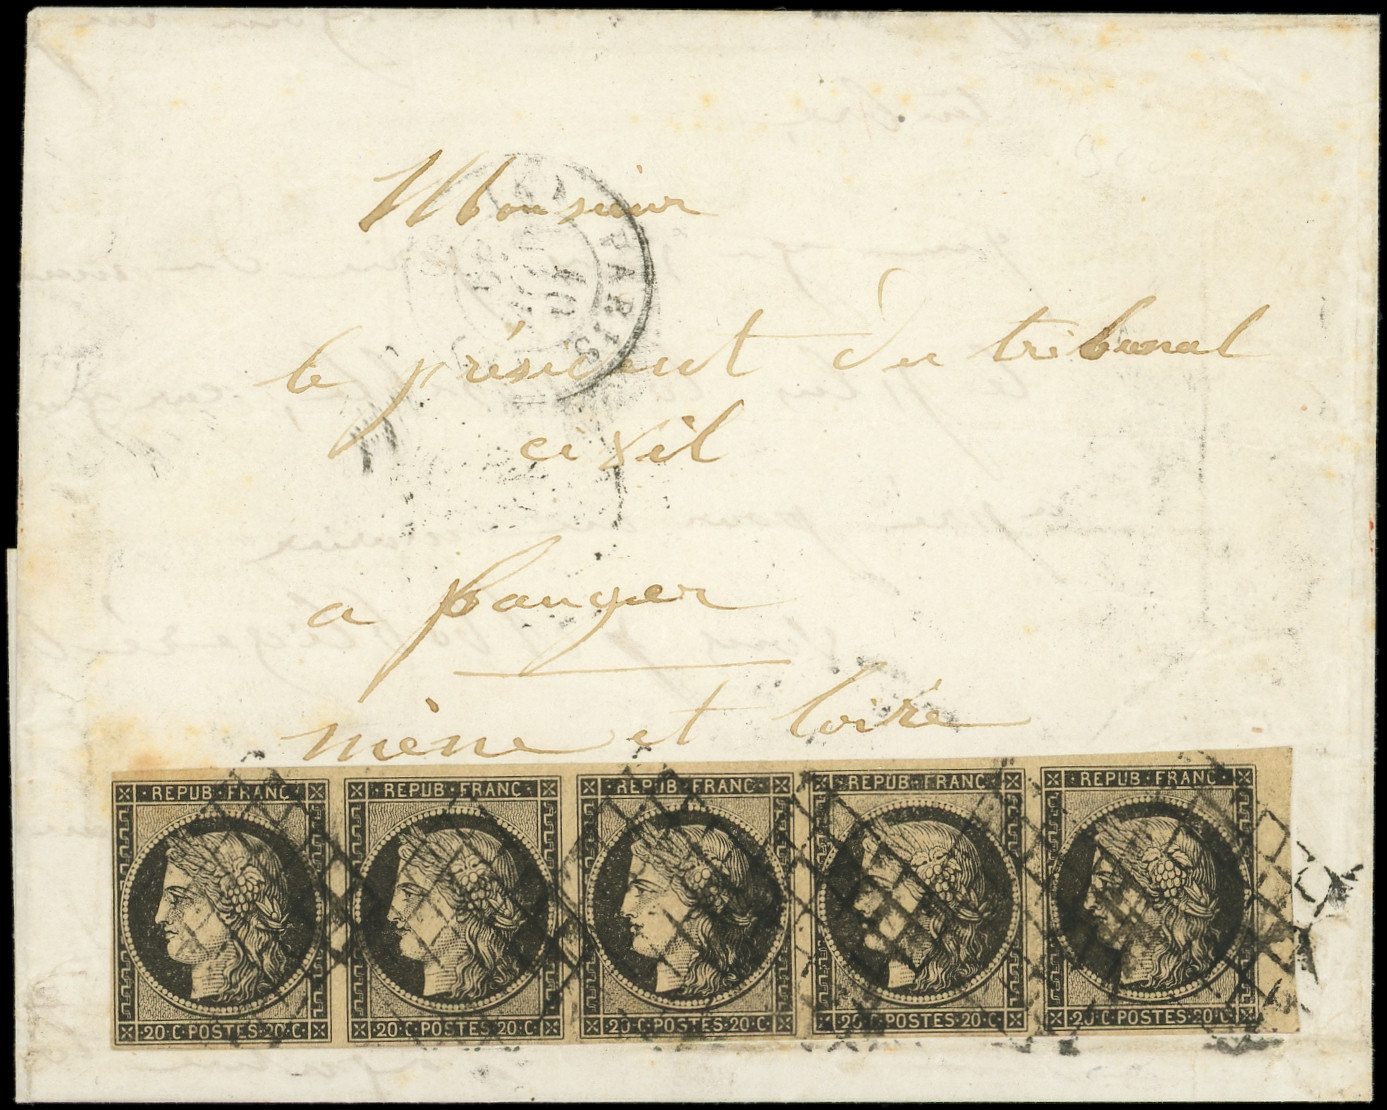 Monsieur
PARIS
le président du tribunal
civil
a bauger
mène et loire
REPUB·FRANC· REPUB·FRANC· REPUB·FRANC· REPUB·FRANC· REPUB·FRANC·
20·C·POSTES·20·C· 20·C·POSTES·20·C· 20·C·POSTES·20·C· 20·C·POSTES·20·C· 20·C·POSTES·20·C·